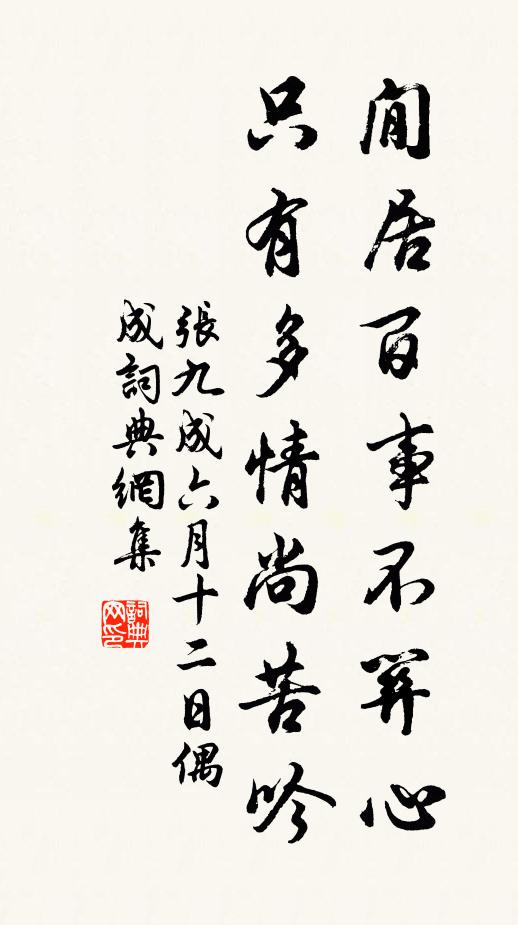 閒居百事不關心
只有多情尚苦吟
張九成六月十二日偶
成詞典網集
詞典
网印